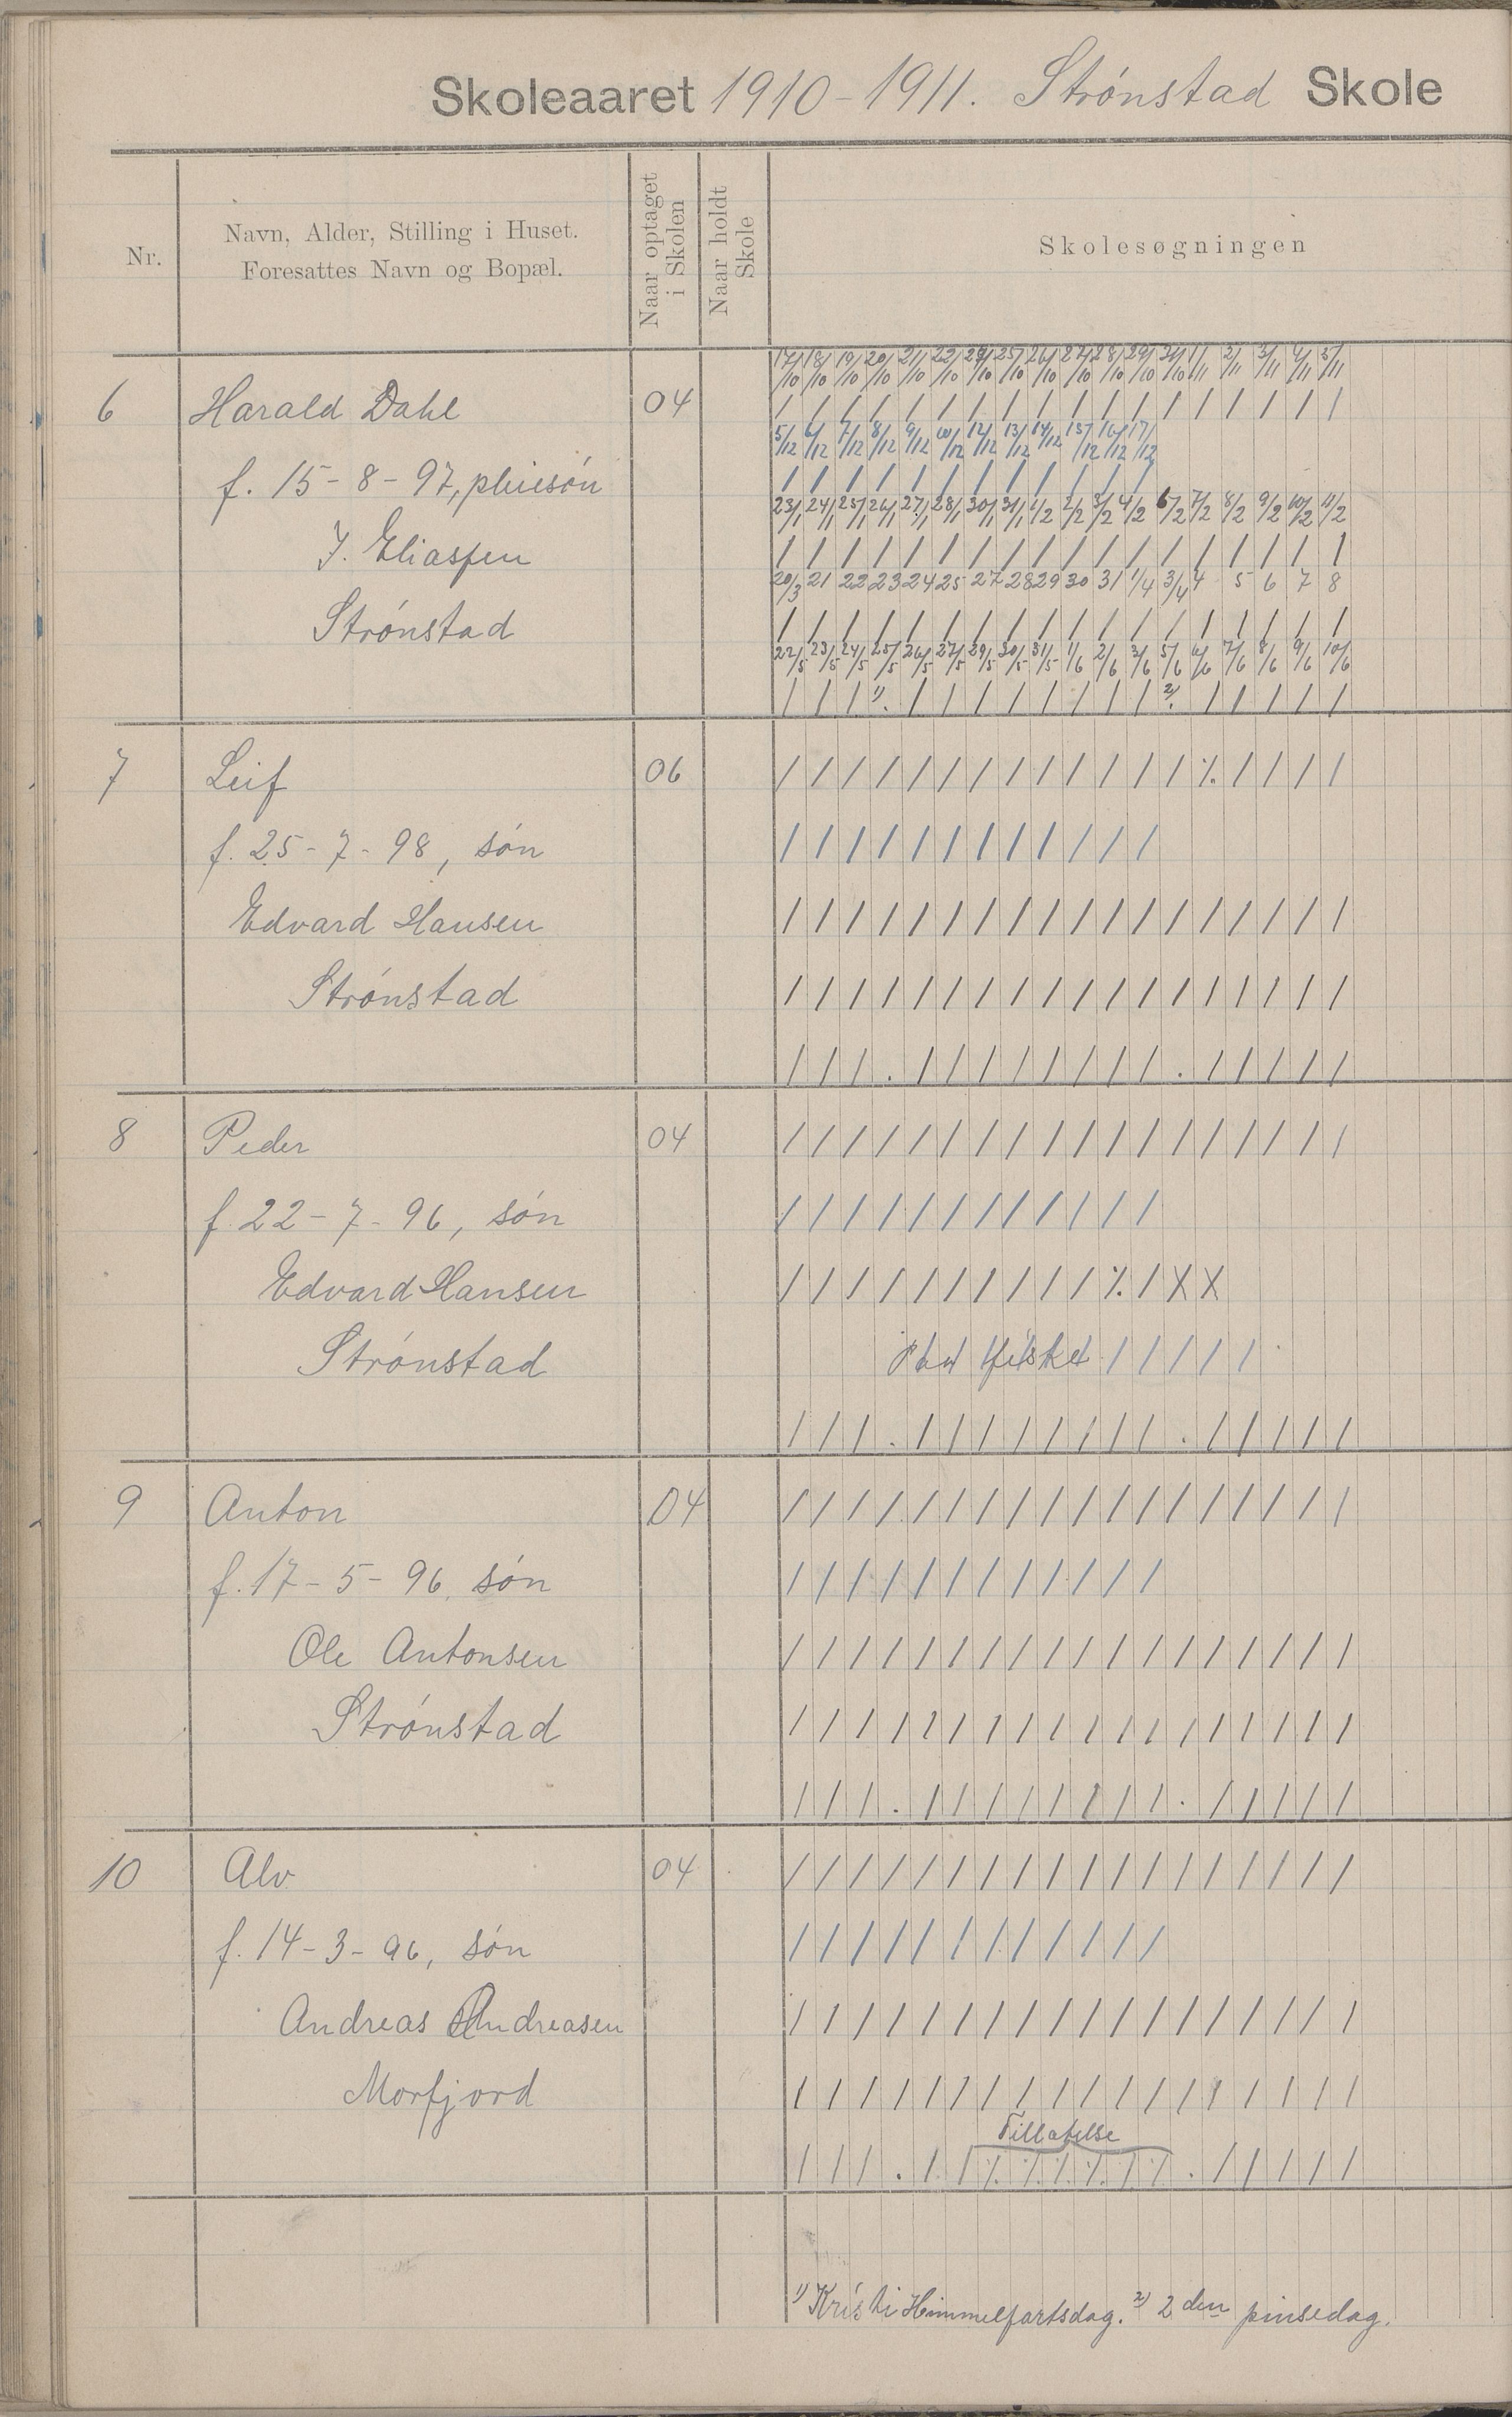 Skoleaaret 1910-1911. Strønstad Skole
Nr.
Navn, Alder, Stilling i Huset.
Foresattes Navn og Bopæl.
Naar optaget
i Skolen
Naar holdt
Skole
Skolesøgningen
17/10 18/10 19/10 20/10 21/10 22/10 24/10 25/10 26/10 27/10 28/10 29/10 31/10 1/11 2/11 3/11 4/11 5/11
6 Harald Dahl 04 / / / / / / / / / / / / / / / / / /
5/12 6/12 7/12 8/12 9/12 10/12 12/12 13/12 14/12 15/12 16/12 17/12
f. 15-8-97, pleiesøn / / / / / / / / / / / /
23/1 24/1 25/1 26/1 27/1 28/1 30/1 31/1 1/2 2/2 3/2 4/2 6/2 7/2 8/2 9/2 10/2 11/2
J. Eliassen / / / / / / / / / / / / / / / / / /
20/3 21 22 23 24 25 27 28 29 30 31 1/4 3/4 4 5 6 7 8
Strønstad / / / / / / / / / / / / / / / / / /
22/5 23/5 24/5 25/5 26/5 27/5 29/5 30/5 31/5 1/6 2/6 3/6 5/6 6/6 7/6 8/6 9/6 10/6
/ / / 1). / / / / / / / / 2). / / / / /
7 Leif 06 / / / / / / / / / / / / / ٪ / / / /
f. 25-7-98, søn / / / / / / / / / / / /
Edvard Hansen / / / / / / / / / / / / / / / / / /
Strønstad / / / / / / / / / / / / / / / / / /
/ / / . / / / / / / / / . / / / / /
8 Peder 04 / / / / / / / / / / / / / / / / / /
f. 22-7-96, søn / / / / / / / / / / / /
Edvard Hansen / / / / / / / / / / ٪ / X X
Strønstad fisket / / / / /
/ / / . / / / / / / / / . / / / / /
9 Anton 04 / / / / / / / / / / / / / / / / / /
f. 17-5-96, søn / / / / / / / / / / / /
Ole Antonsen / / / / / / / / / / / / / / / / / /
Strønstad / / / / / / / / / / / / / / / / / /
/ / / . / / / / / / / / . / / / / /
10 Alv 04 / / / / / / / / / / / / / / / / / /
f. 14-3-96, søn / / / / / / / / / / / /
Andreas Andreasen / / / / / / / / / / / / / / / / / /
Morfjord / / / / / / / / / / / / / / / / / /
Tillatelse
/ / / . / / ٪ ٪ ٪ ٪ ٪ ٪ . / / / / /
1) Kristi Himmelfartsdag. 2) 2den pinsedag.